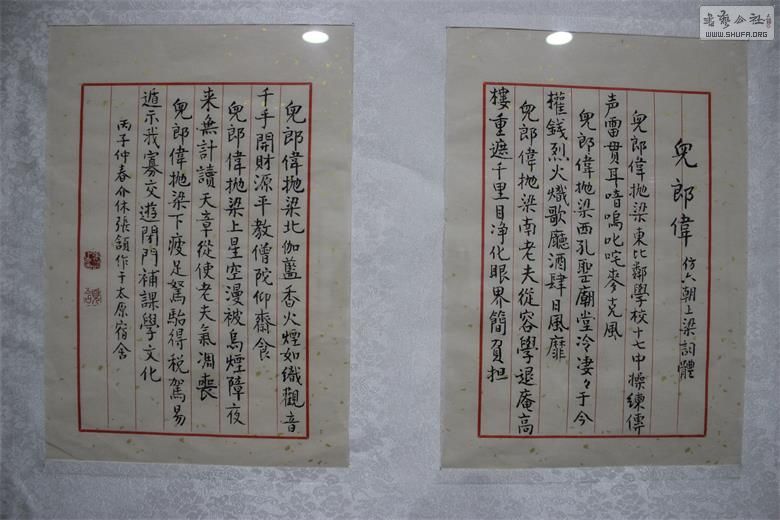 兒郎偉 仿六朝上梁詞體
兒郎偉抛梁東比鄰學校十七中操練傳
声雷貫耳喑嗚叱咤麥克風
兒郎偉抛梁西孔聖廟堂冷凄々于今
攉錢烈火熾歌廳酒肆日風靡
兒郎偉抛梁南老夫從容學退庵高
樓重遮千里目净化眼界簡負担
兒郎偉抛梁北伽藍香火煙如織觀音
千手開財源平教僧陀仰齋食
兒郎偉抛梁上星空漫被烏煙障夜
来無計讀天章從使老夫氣凋喪
兒郎偉抛梁下疲足駑駘得税駕易
遁示我寡交遊閉門補課學文化
丙子仲春介休張頷作于太原宿舍
書藝公社
WWW.SHUFA.ORG